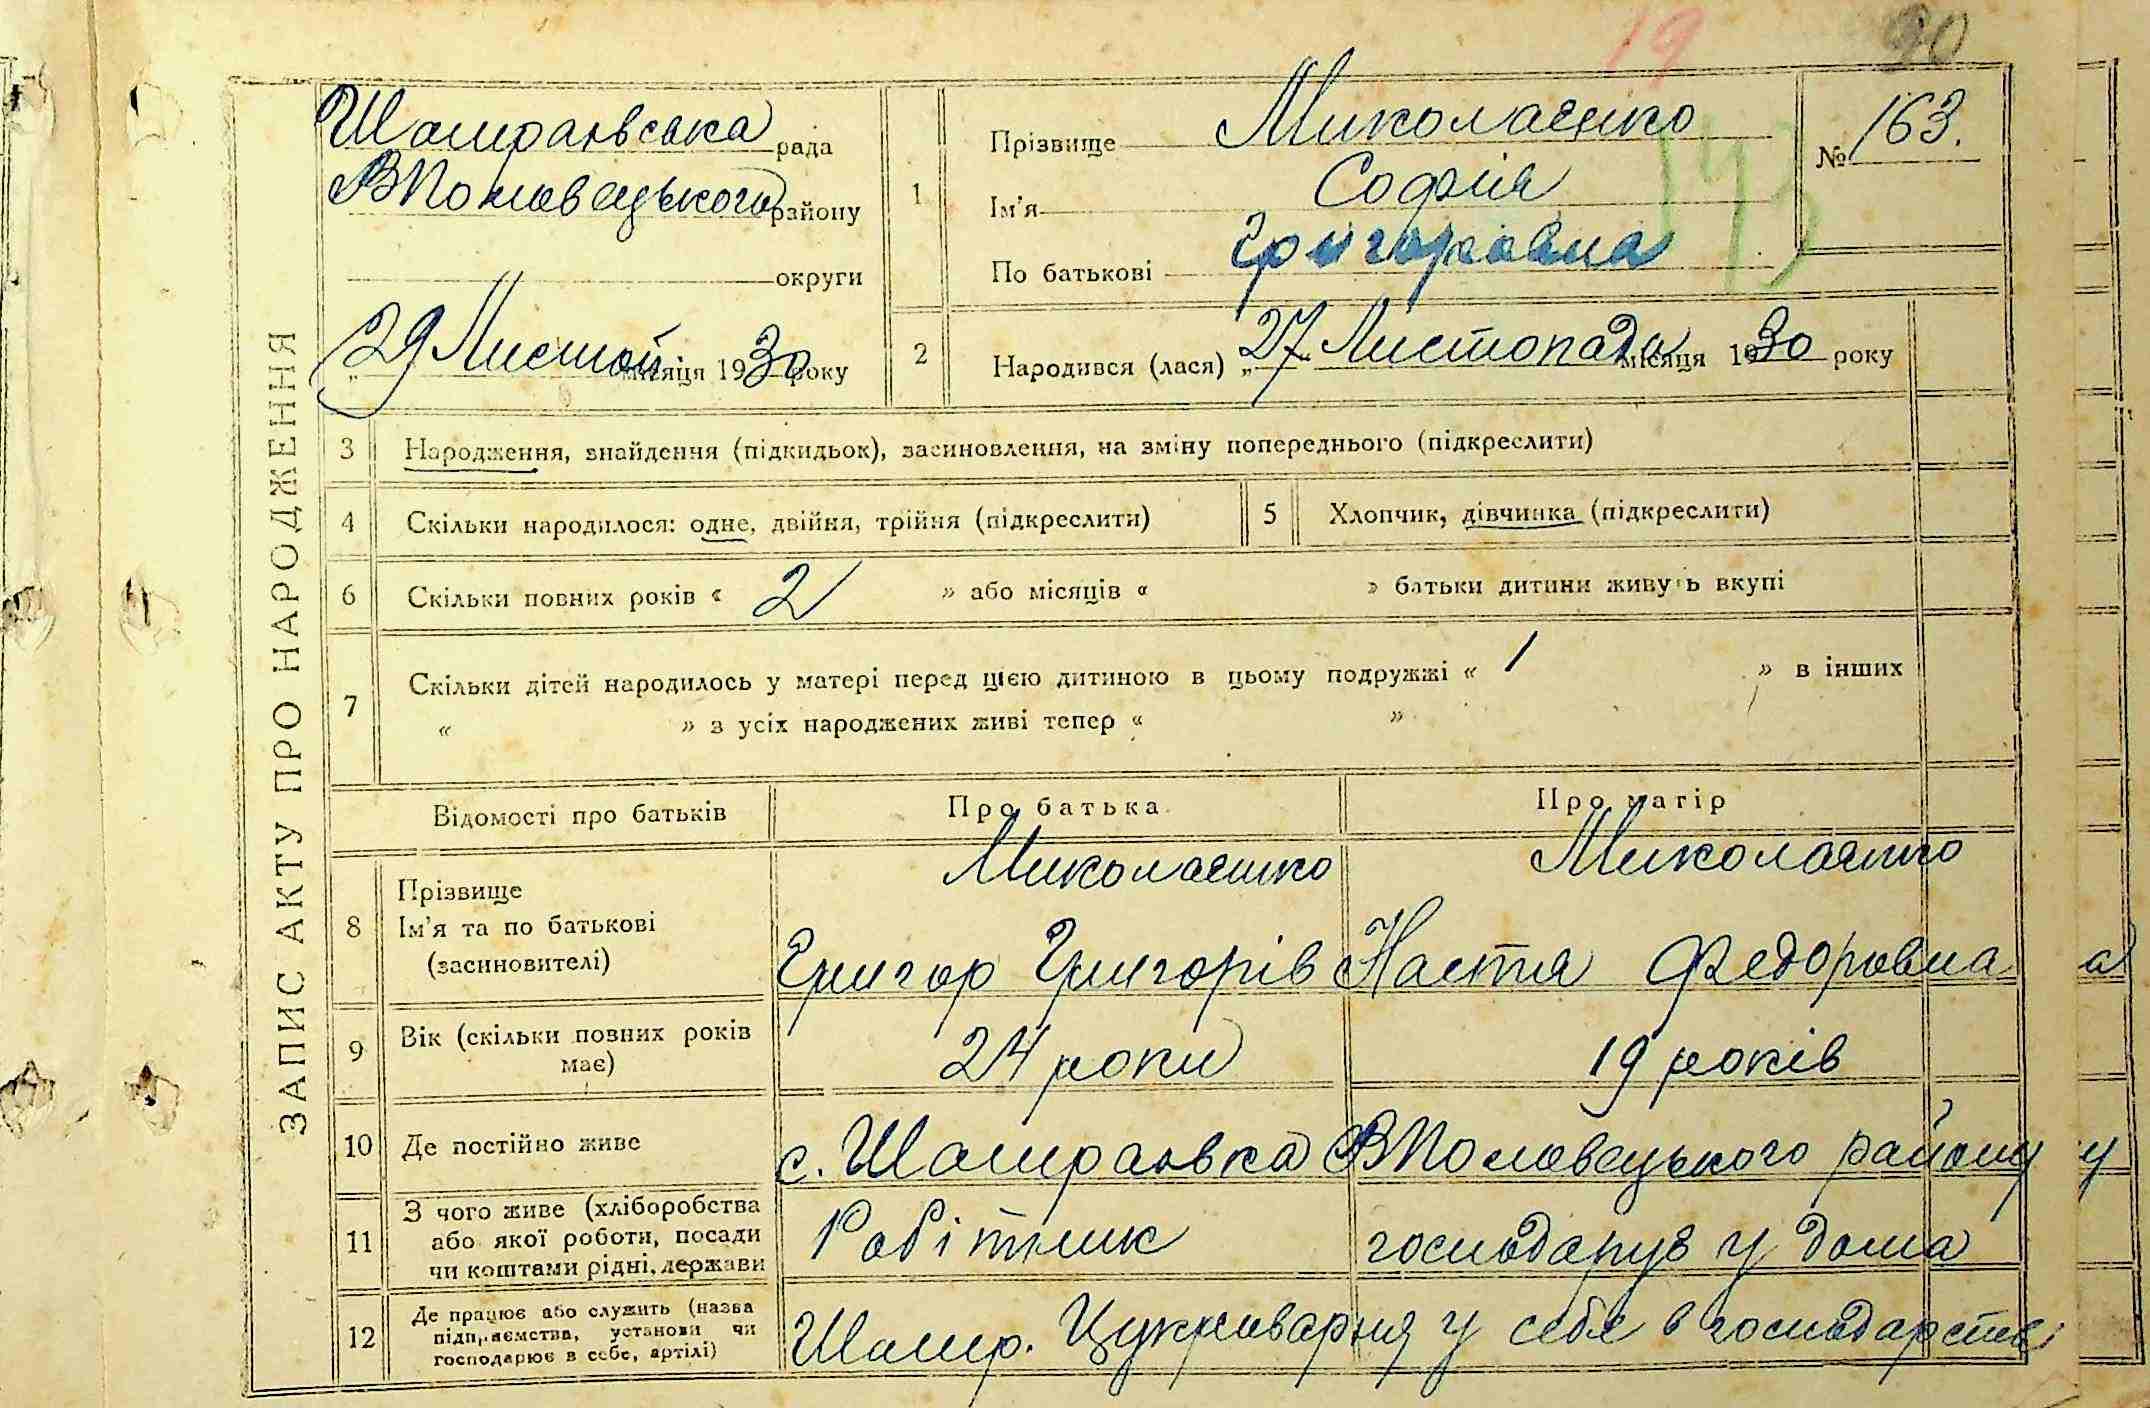 19 90
ЗАПИС АКТУ ПРО НАРОДЖЕННЯ
Шамраївська рада
ВПоловецького району
округи
„29 Листоп місяця 1930 року
1
Прізвище Миколаєнко
Ім'я Софія
По батькові Григоровна
№ 163.
143
2 Народився (лася) „27 Листопада місяця 1930 року
3 Народження, знайдення (підкидьок), засиновлення, на зміну попереднього (підкреслити)
4 Скільки народилося: одне, двійня, трійня (підкреслити)
5 Хлопчик, дівчинка (підкреслити)
6 Скільки повних років « 2 » або місяців « » батьки дитини живуть вкупі
7 Скільки дітей народилось у матері перед цією дитиною в цьому подружжі « 1 » в інших
« » з усіх народжених живі тепер « »
Відомості про батьків Про батька Про матір
8 Прізвище
Ім'я та по батькові
(засиновителі)
Миколаєнко
Григор Григорів
Миколаєнко
Настя Федоровна
9 Вік (скільки повних років
має)
24 роки
19 років
10 Де постійно живе
с. Шамраївка ВПоловецького району
11 З чого живе (хліборобства
або якої роботи, посади
чи коштами рідні, держави
Робітник
господарує у дома
12 Де працює або служить (назва
підприємства, установи чи
господарює в себе, артілі)
Шамр. Цукроварня
у себе в господарстві
а
у